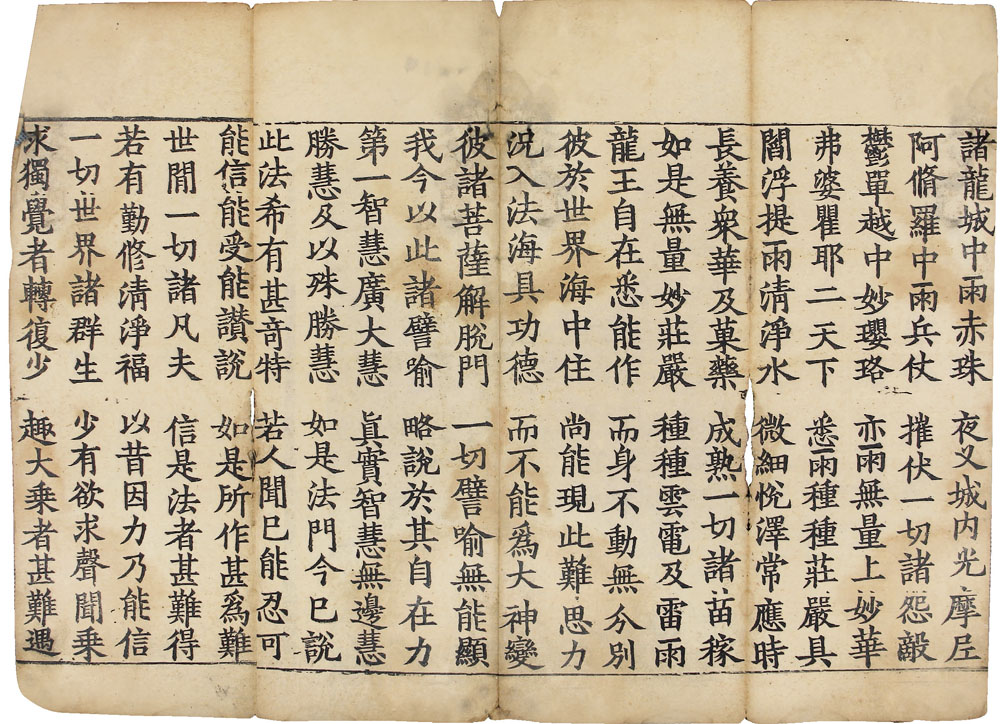 諸龍城中雨赤珠 夜叉城内光摩尼
阿脩羅中雨兵仗 摧伏一切諸怨敵
鬱單越中妙瓔珞 亦雨無量上妙華
弗婆瞿耶二天下 悉雨種種莊嚴具
閻浮提雨清淨水 微細悅澤常應時
長養衆華及菓藥 成熟一切諸苗稼
如是無量妙莊嚴 種種雲電及雷雨
龍王自在悉能作 而身不動無分別
彼於世界海中住 尚能現此難思力
況入法海具功德 而不能爲大神變
彼諸菩薩解脫門 一切譬喻無能顯
我今以此諸譬喻 略說於其自在力
第一智慧廣大慧 眞實智慧無邊慧
勝慧及以殊勝慧 如是法門今已說
此法希有甚奇特 若人聞已能忍可
能信能受能讚說 如是所作甚爲難
世間一切諸凡夫 信是法者甚難得
若有勤修清淨福 以昔因力乃能信
一切世界諸群生 少有欲求聲聞乘
求獨覺者轉復少 趣大乘者甚難遇